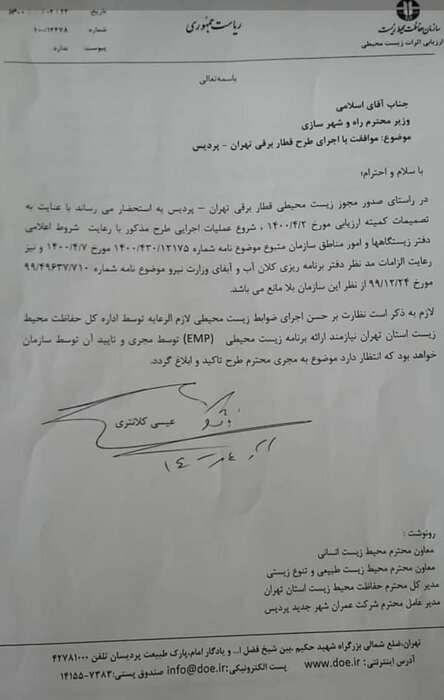 ریاست جمهوری
سازمان حفاظت محیط زیست
ارزیابی اثرات زیست محیطی
تاریخ
شماره ۱۰۰/۱۲۴۷۸
پیوست: ندارد
باسمه‌تعالی
جناب آقای اسلامی
وزیر محترم راه و شهر سازی
موضوع: موافقت با اجرای طرح قطار برقی تهران - پردیس
با سلام و احترام؛
در راستای صدور مجوز زیست محیطی قطار برقی تهران - پردیس به استحضار می رساند با عنایت به
تصمیمات کمیته ارزیابی مورخ ۱۴۰۰/۴/۲ ، شروع عملیات اجرایی طرح مذکور با رعایت شروط اعلامی
دفتر زیستگاهها و امور مناطق سازمان متبوع موضوع نامه شماره ۱۴۰۰/۴۳۰/۱۲۱۷۵ مورخ ۱۴۰۰/۴/۷ و نیز
رعایت الزامات مد نظر دفتر برنامه ریزی کلان آب و آبفای وزارت نیرو موضوع نامه شماره ۹۹/۴۹۶۳۷/۷۱۰
مورخ ۹۹/۱۲/۲۴ از نظر این سازمان بلا مانع می باشد.
لازم به ذکر است نظارت بر حسن اجرای ضوابط زیست محیطی لازم الرعایه توسط اداره کل حفاظت محیط
زیست استان تهران نیازمند ارائه برنامه زیست محیطی (EMP) توسط مجری و تایید آن توسط سازمان
خواهد بود که انتظار دارد موضوع به مجری محترم طرح تاکید و ابلاغ گردد.
عیسی کلانتری
رونوشت :
معاون محترم محیط زیست انسانی
معاون محترم محیط زیست طبیعی و تنوع زیستی
مدیر کل محترم حفاظت محیط زیست استان تهران
مدیر عامل محترم شرکت عمران شهر جدید پردیس
تهران،ضلع شمالی بزرگراه شهید حکیم ،بین شیخ فضل ا... و یادگار امام،پارک طبیعت پردیسان تلفن ۴۲۷۸۱۰۰۰
آدرس اینترنتی: www.doe.ir پست الکترونیکی:info@doe.ir صندوق پستی:۷۳۸۳-۱۴۱۵۵